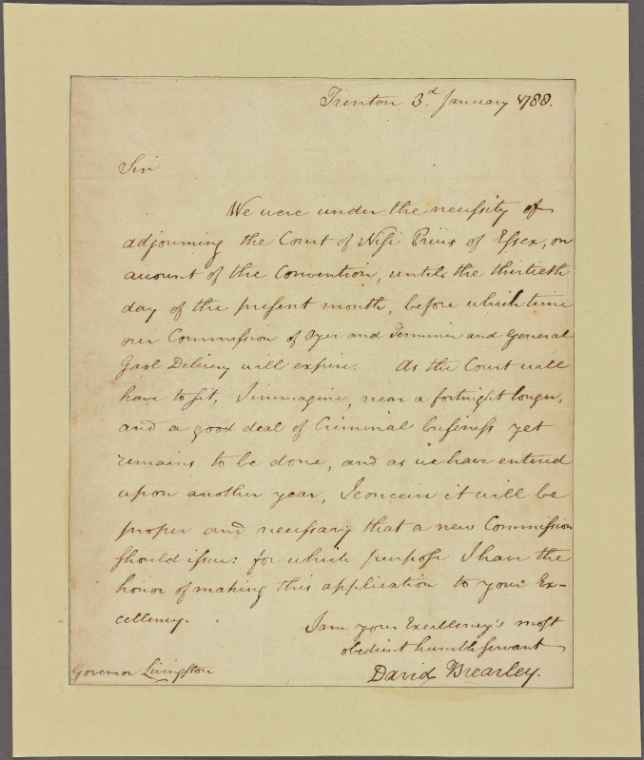 Trenton 3.d January 1788.
Sir
We were under the necessity of
adjourning the Court of Nisi Prius of Essex, on
account of the Convention, untill the thirtieth
day of the present month, before which time
our Commission of Oyer and Terminer and General
Gaol Delivery will expire. As the Court will
have to sit, I immagine, near a fortnight longer,
and a good deal of Criminal business yet
remains to be done, and as we have entered
upon another year, I conceive it will be
proper and necessary that a new Commission
should issue: for which purpose I have the
honor of making this application to your Ex-
cellency.
I am your Excellency's most
obedient humble servant
David Brearley.
Governor Livingston